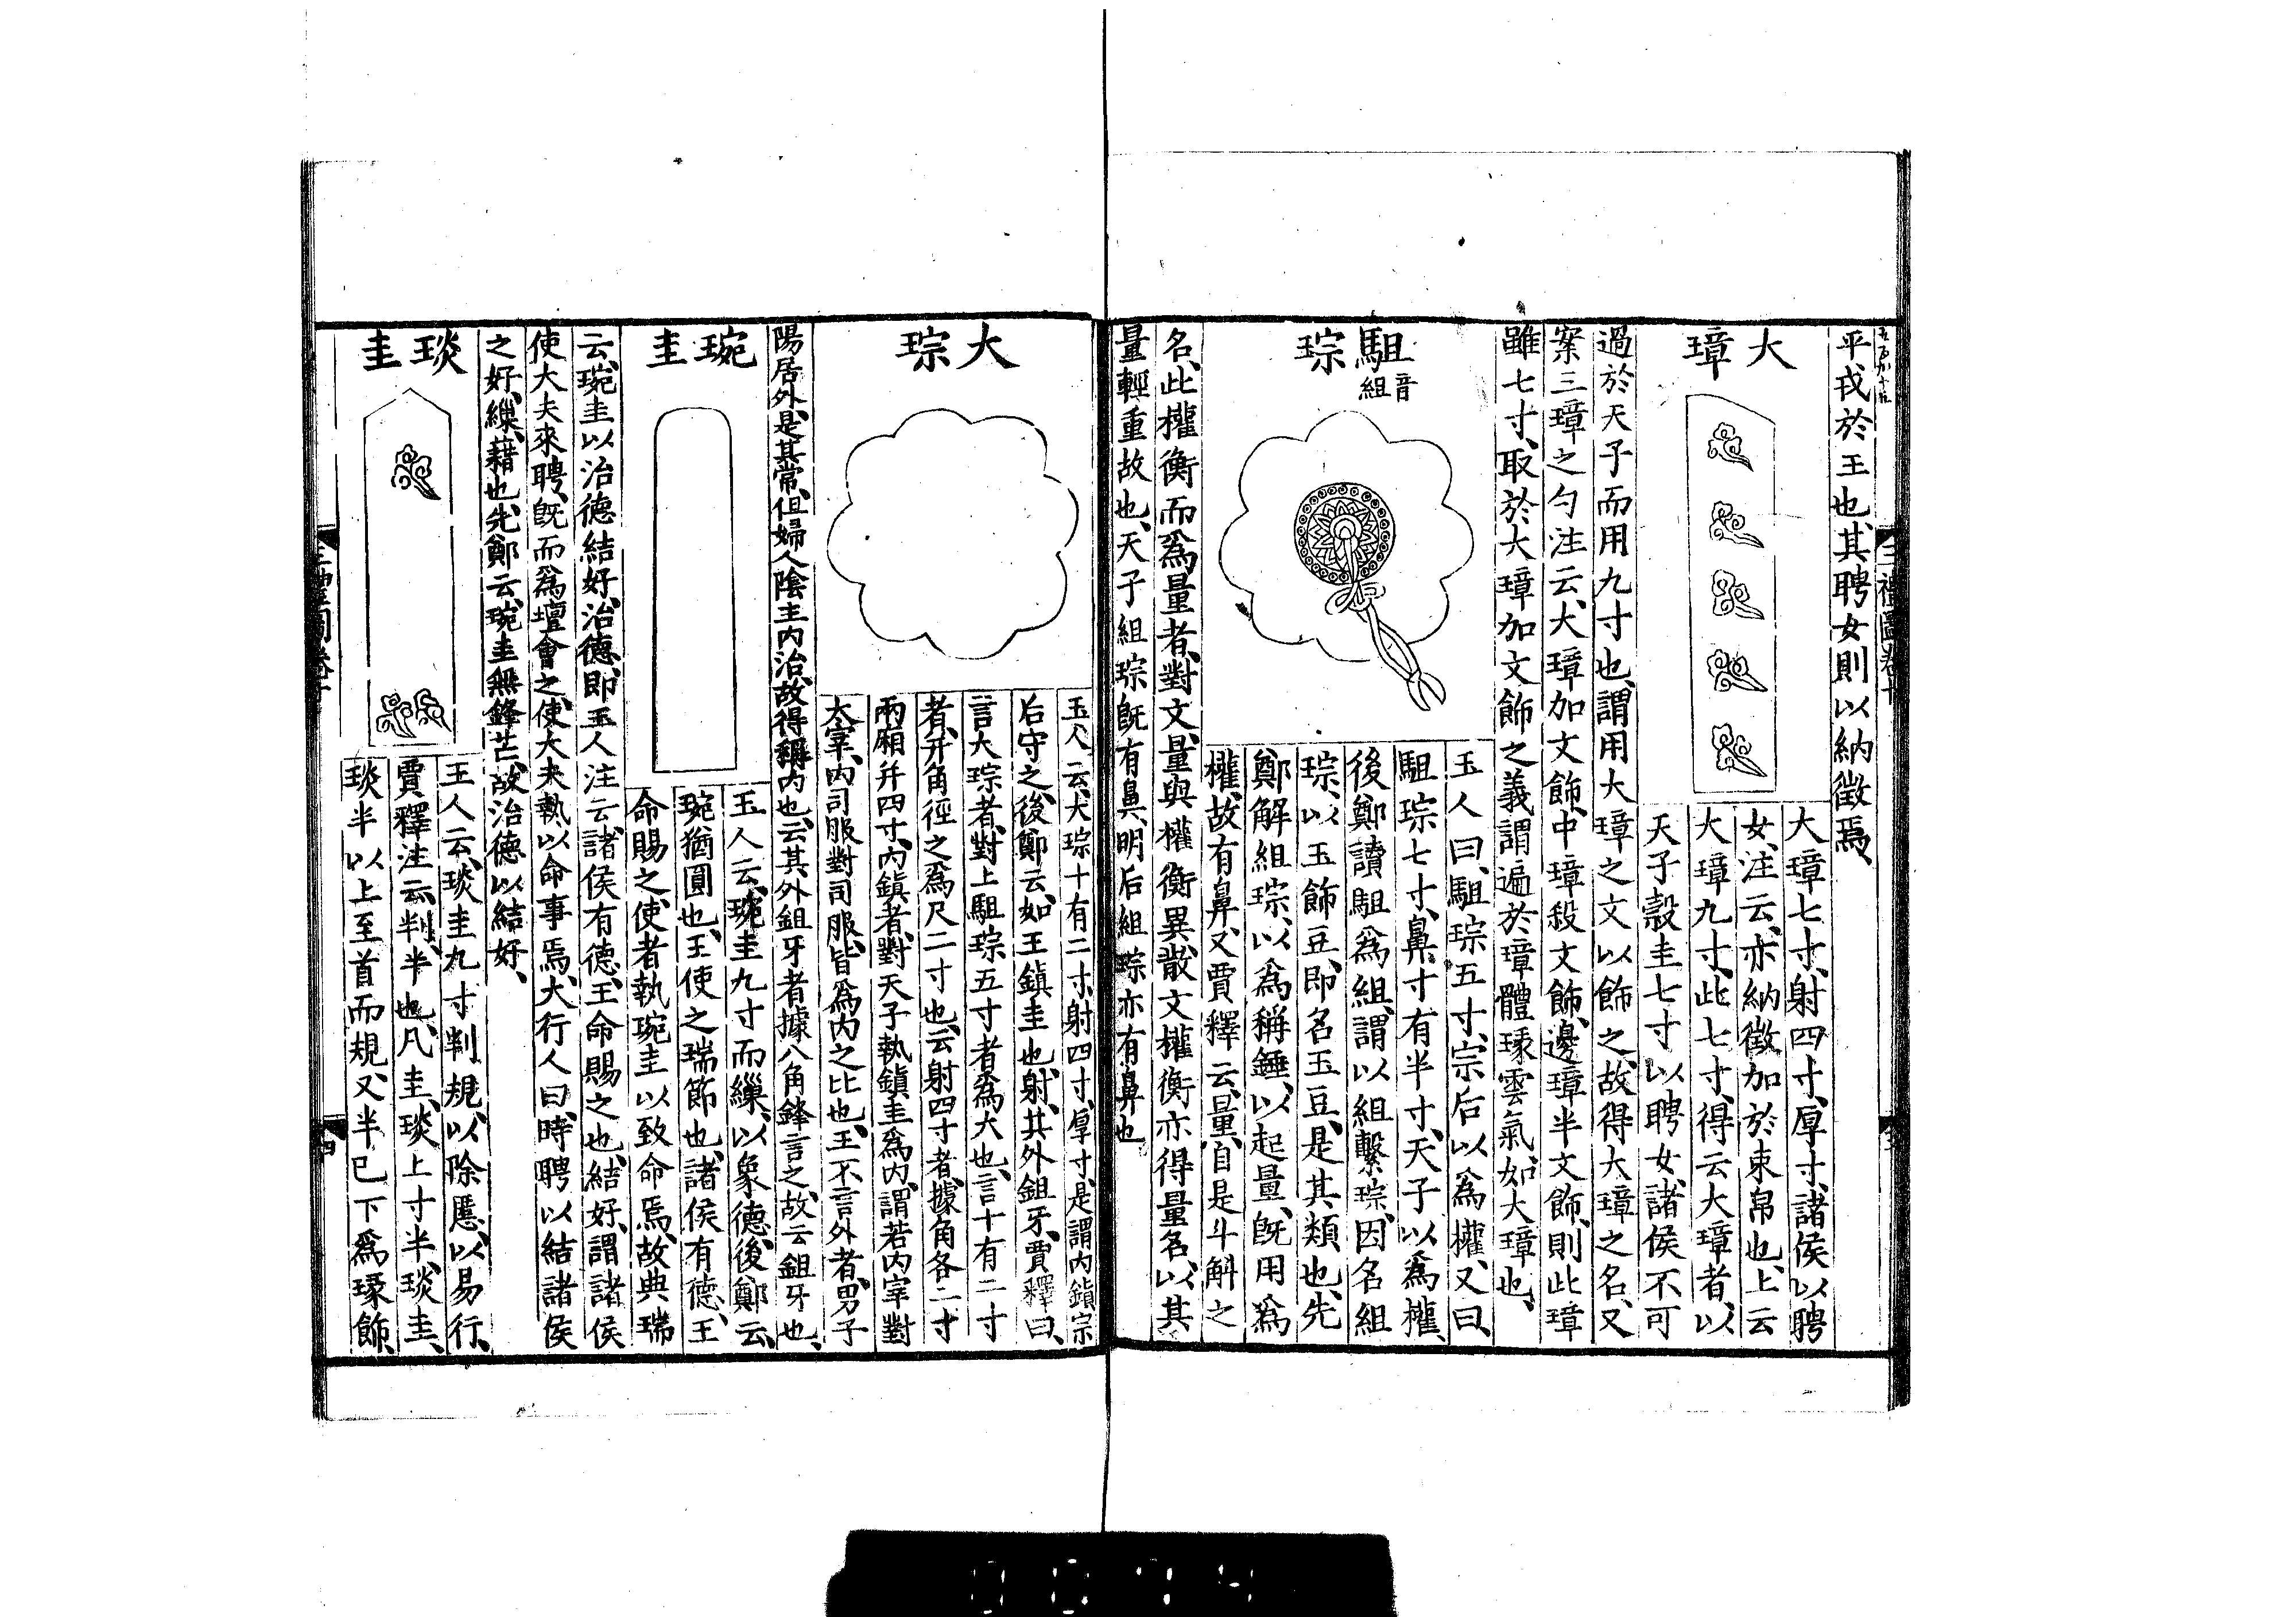 平戎於王也其聘女則以納徵焉
大璋
大璋七寸射四寸厚寸諸侯以聘
女注云亦納徵加於束帛也上云
大璋九寸此七寸得云大璋者以
天子穀圭七寸以聘女諸侯不可
過於天子而用九寸也謂用大璋之文以飾之故得大璋之名又
案三璋之勺注云大璋加文飾中璋殺文飾邊璋半文飾則此璋
雖七寸取於大璋加文飾之義謂遍於璋體瑑雲氣如大璋也
駔琮
音組
玉人曰駔琮五寸宗后以為權又曰
駔琮七寸鼻寸有半寸天子以為權
後鄭讀駔為組謂以組繫琮因名組
琮以玉飾豆即名玉豆是其類也先
鄭解組琮以為稱錘以起量既用為
權故有鼻又賈釋云量自是斗斛之
名此權衡而為量者對文量與權衡異散文權衡亦得量名以其
量輕重故也天子組琮既有鼻明后組琮亦有鼻也
大琮
玉人云大琮十有二寸射四寸厚寸是謂內鎮宗
后守之後鄭云如王鎮圭也射其外鉏牙賈釋曰
言大琮者對上駔琮五寸者為大也言十有二寸
者幷角徑之為尺二寸也云射四寸者據角各二寸
兩廂幷四寸內鎮者對天子執鎮圭為內謂若內宰對
大宰內司服對司服皆為內之比也王不言外者男子
陽居外是其常但婦人陰主內治故得稱內也云其外鉏牙者據八角鋒言之故云鉏牙也
琬圭
玉人云琬圭九寸而繅以象德後鄭云
琬猶圓也王使之瑞節也諸侯有德王
命賜之使者執琬圭以致命焉故典瑞
云琬圭以治德結好治德即玉人注云諸侯有德王命賜之也結好謂諸侯
使大夫來聘既而為壇會之使大夫執以命事焉大行人曰時聘以結諸侯
之好繅藉也先鄭云琬圭無鋒芒故治德以結好
琰圭
玉人云琰圭九寸判規以除慝以易行
賈釋注云判半也凡圭琰上寸半琰圭
琰半以上至首而規又半已下為瑑飾
三禮圖卷十
四